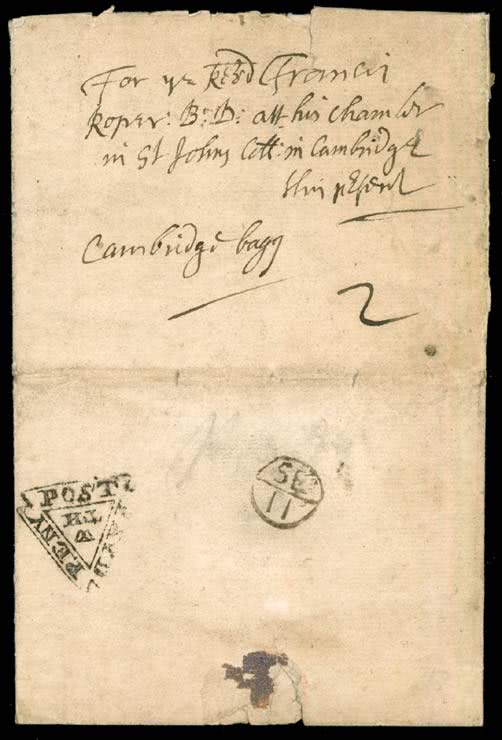 For ye Revrd Francis
Roper: B: D: att his Chamber
in St Johns Coll: in Cambridge
this present
Cambridge bagg
2
SE
11
PENY
POST
PAYD
W
TH